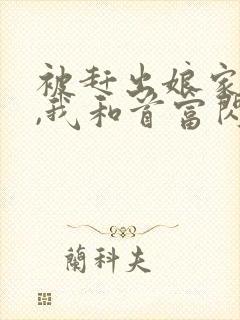 被赶出娘家
,我和首富閃
蘭科夫